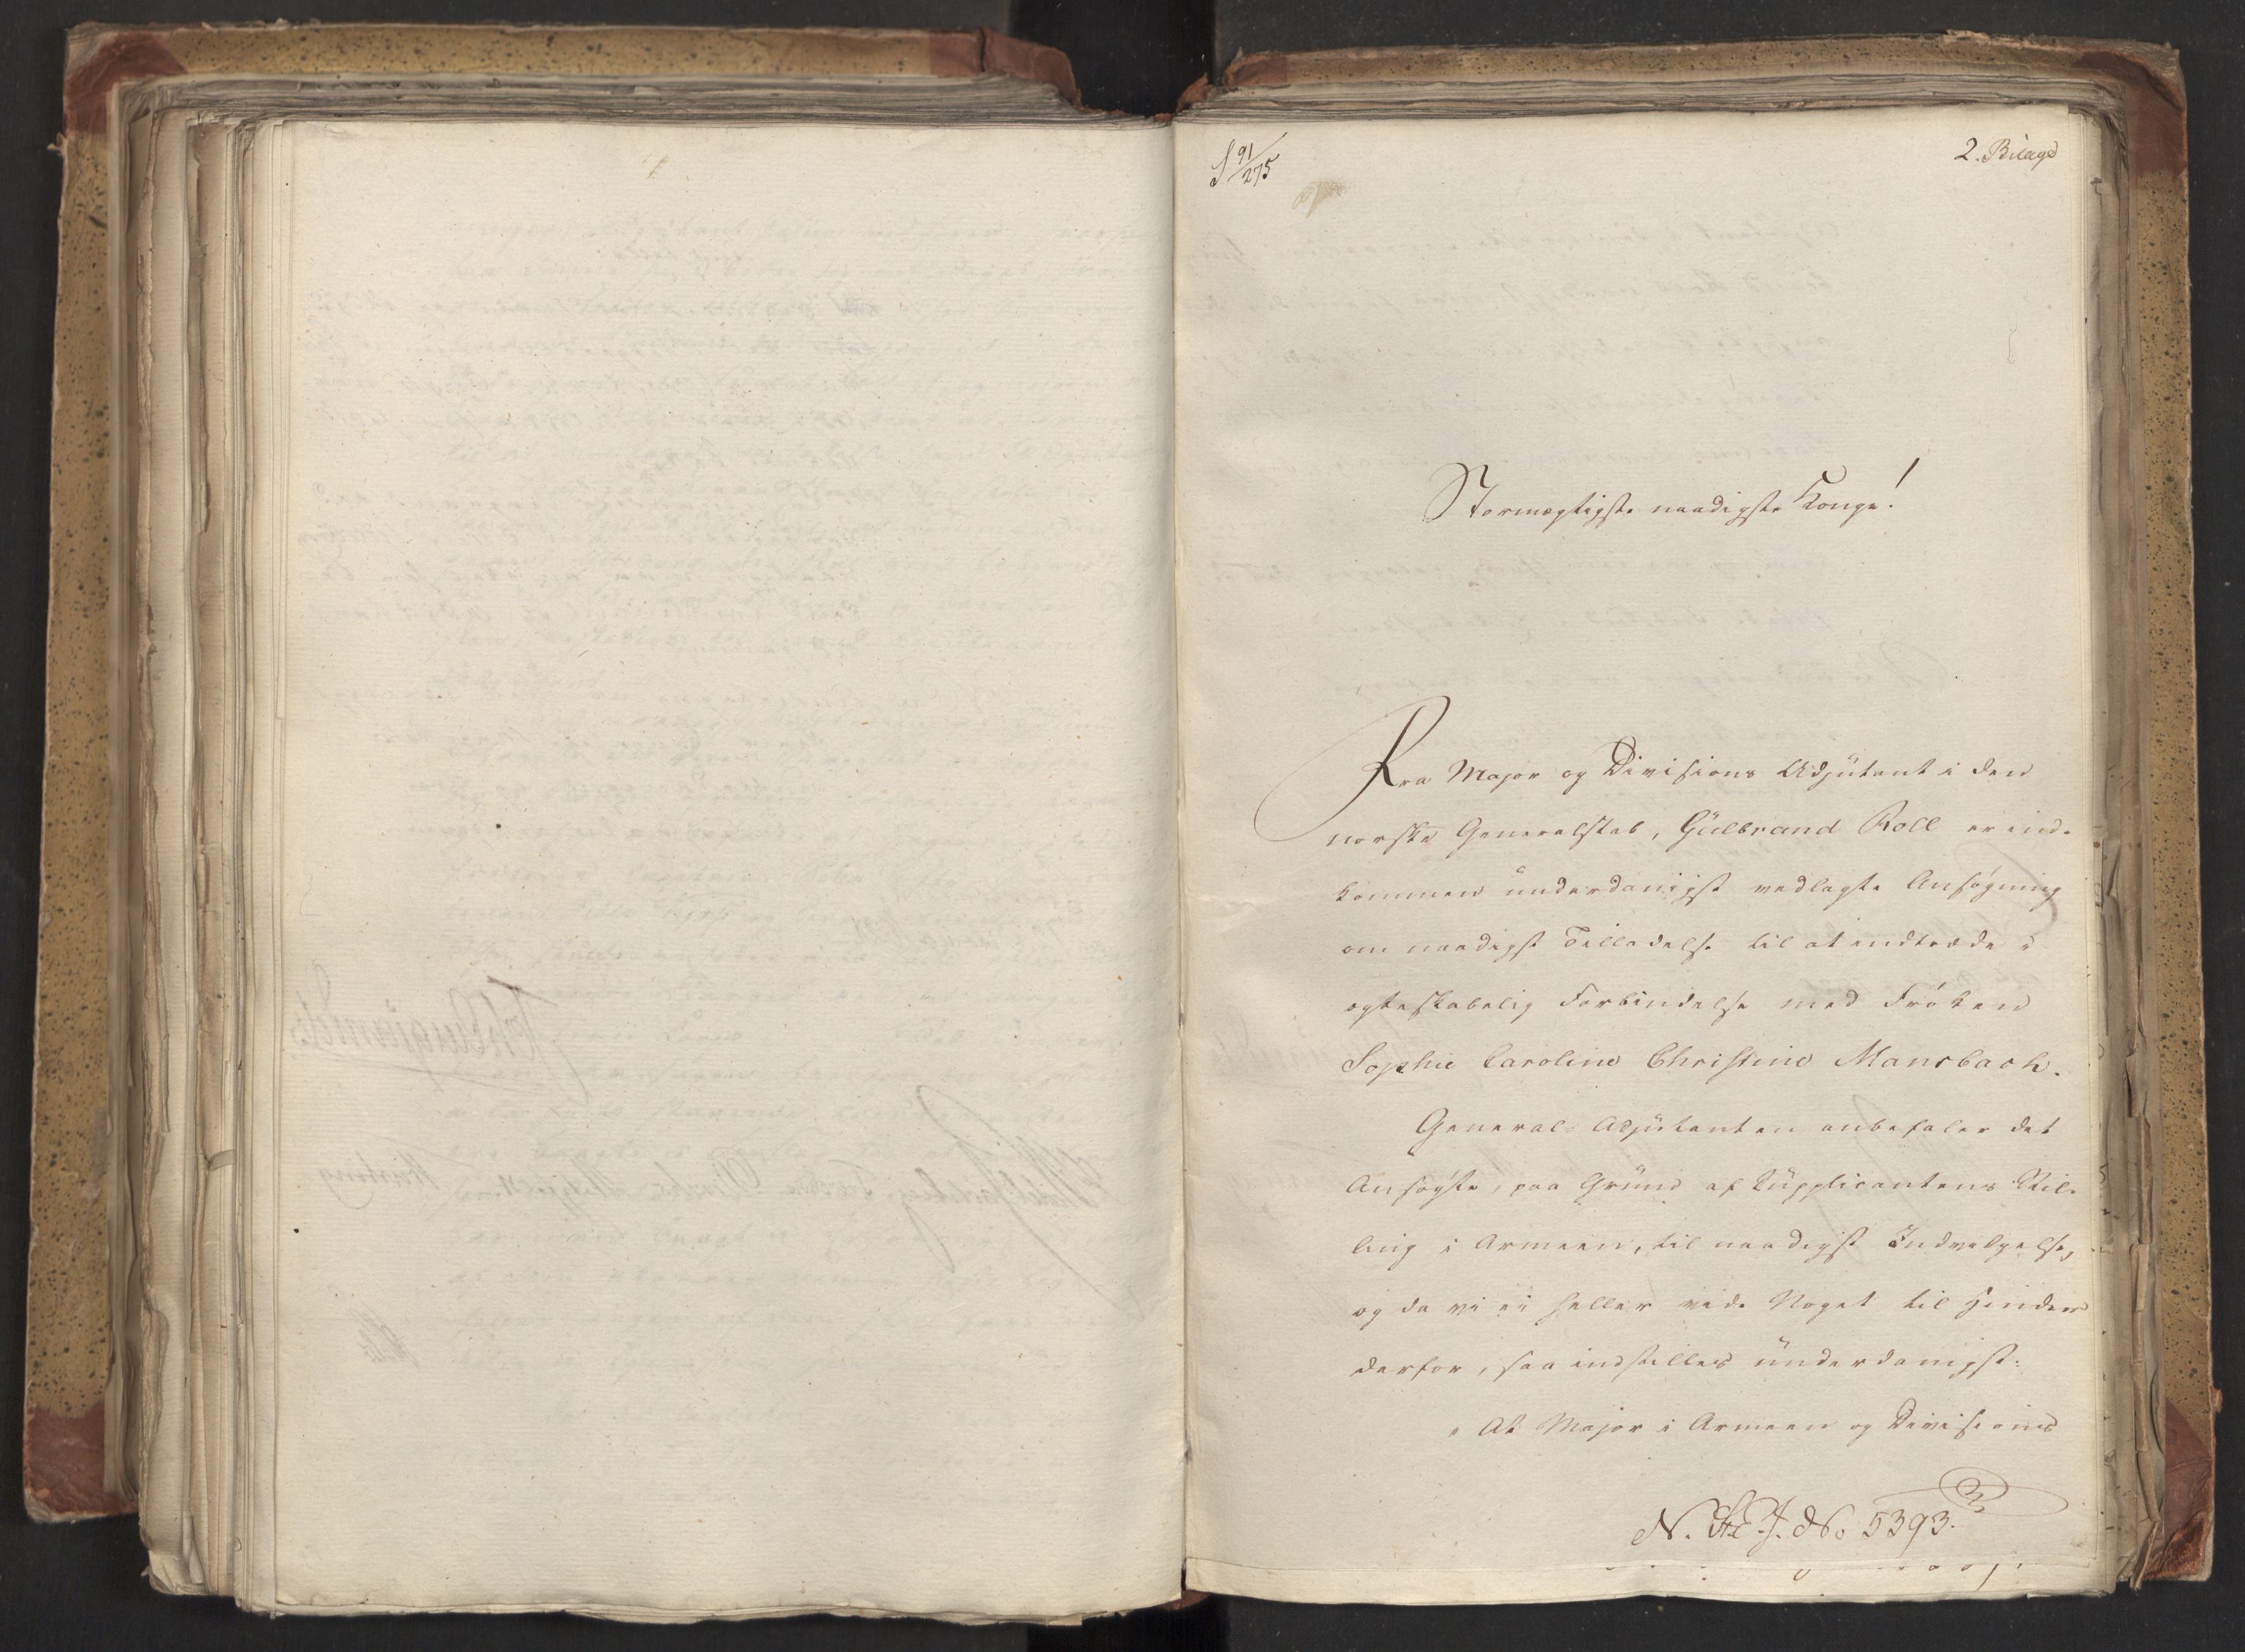 S 91/275
2. Bilage
Stormægtigste naadigste Konge!
Fra Major og Divisions Adjütant i den
norske Generalstab, Gülbrand Roll er ind-
kommen ünderdanigst vedlagte Ansøgning
om naadigst Tilladelse til at indtræde i
ægteskabelig Forbindelse med Frøken
Sophie Caroline Christine Mansbach.
General-Adjütanten anbefaler det
Ansøgte, paa Gründ af Süpplicantens Stil-
ling i Armeen, til naadigst Indvilgelse,
og da vi ei heller vide Noget til Hinder
derfor, saa indstilles ünderdanigst:
"At Major i Armeen og Divisions
N. St. E. J. No 5393.